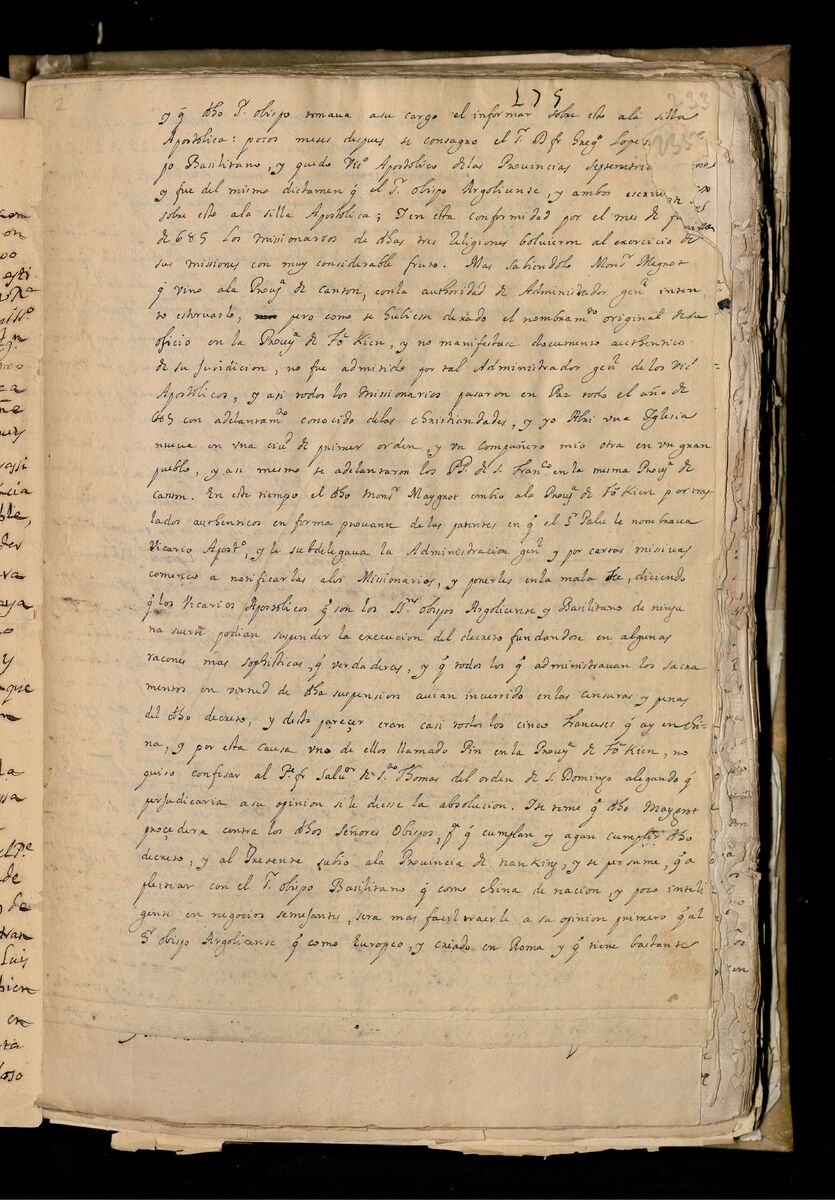 2
175
233
235
y q̃ dho Sr obispo tomaua a su cargo el informar sobre esto ala silla
Apostolica: pocos meses despues se consagro el Sr D fr Gregº Lopes
po Basilitano, y quedo Vicº Apostolico de las Prouincias septentrio
y fue del mismo dictamen q̃ el Sr obispo Argolicense, y ambos escriuie
sobre esto ala silla Apostolica; Y en esta conformidad por el mes de
de 685 los missionarios de dhas tres Religiones boluieron al exercicio de
sus missiones con muy considerable fruto. Mas sabiendolo Monsr Megrot
q̃ vino ala Prouª de Canton, con la authoridad de Administrador genl inten
to estoruarlo, pero como se hubiesse dexado el nombramto original de su
oficio en la Prouª de Fò Kien, y no manifestase documento authentico
de su Juridicion, no fue admitido por tal Administrador genl de los Vicº
Apostolicos, y asi todos los missionarios pasaron en Paz todo el año de
685 con adelantamto conocido de las christiandades, y yo Abri vna Yglesia
nueua en vna ciud de primer orden, y vn compañero mio otra en vn gran
pueblo, y asi mesmo se adelantaron los PP. de S. Francº en la mesma Prouª de
Canton. En este tiempo el dho Monsr Maygrot embio ala Prouª de Fò Kien por tras
lados authenticos en forma prouante de las patentes en q̃ el Sr Palu le nombraua
Vicario Apostº, y le subdelegaua la Administracion genl y por cartas missiuas
comenco a notificarlas alos Missionarios, y ponerles en la mala fee, diciendo
q̃ los Vicarios Apostolicos q̃ son los SSres obispos Argolicense y Basilitano de ningu
na suerte podian suspender la execucion del decreto fundandose en algunas
racones mas sophisticas, q̃ verdaderas, y q̃ todos los q̃ administrauan los sacra
mentos en virtud de dha suspension auian incurrido en las censuras y penas
del dho decreto, y deste pareçer eran casi todos los cinco franceses q̃ ay en Chi=
na, y por esta causa vno de ellos llamado Pin en la Prouª de Fò Kien, no
quiso confesar al Pe fr Saluor de Sto Thomas del orden de S. Domingo alegando q̃
perjudicaria a su opinion si le diesse la absolucion. Y se teme q̃ dho Maygrot
proçedera contra los dhos Señores Obispos, pª q̃ cumplan y agan cumplir dho
decreto, y al Presente subio ala Prouincia de nanking, y se persume, q̃ a
pleitear con el Sr obispo Basilitano q̃ como china de nacion, y poco inteli
gente en negocios semejantes, sera mas facil traerle a su opinion primero q̃ al
Sr obispo Argolicense q̃ como Europeo, y criado en Roma y q̃ tiene bastante